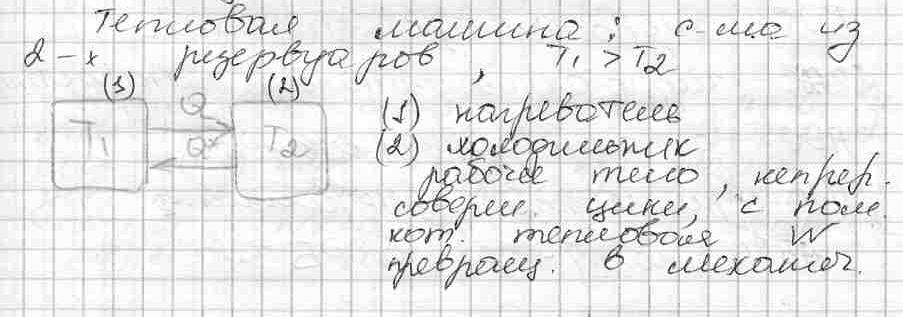 тепловая машина: с-ма из
2-х резервуаров, T₁ > T₂
(1) (2)
T₁ Q T₂
Q*
(1) нагреватель
(2) холодильник
рабочее тело, непрер.
соверш. цикл, с пом.
кот. тепловая W
превращ. в механич.